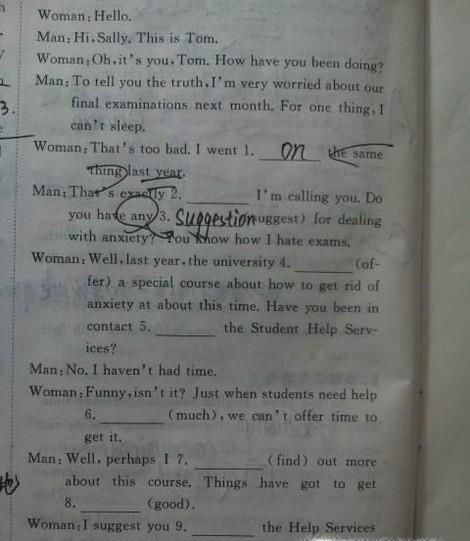 Woman: Hello.
Man: Hi, Sally. This is Tom.
Woman: Oh, it's you, Tom. How have you been doing?
Man: To tell you the truth, I'm very worried about our
final examinations next month. For one thing, I
can't sleep.
3.
Woman: That's too bad. I went 1. on the same
thing last year.
Man: That's exactly 2. ______ I'm calling you. Do
you have any 3. Suggestion (suggest) for dealing
with anxiety? You know how I hate exams.
Woman: Well, last year, the university 4. ______ (of-
fer) a special course about how to get rid of
anxiety at about this time. Have you been in
contact 5. ______ the Student Help Serv-
ices?
Man: No. I haven't had time.
Woman: Funny, isn't it? Just when students need help
6. ______ (much), we can't offer time to
get it.
Man: Well, perhaps I 7. ______ (find) out more
about this course. Things have got to get
8. ______ (good).
Woman: I suggest you 9. ______ the Help Services